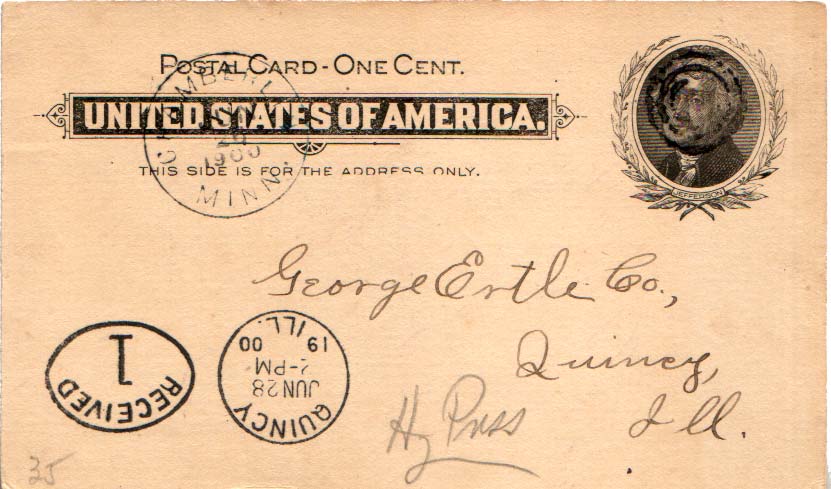 POSTAL CARD - ONE CENT.
UNITED STATES OF AMERICA.
THIS SIDE IS FOR THE ADDRESS ONLY.
1900
MINN.
JEFFERSON
George Ertle Co.,
Quincy,
Ill.
Hy Press
RECEIVED
1
QUINCY
JUN 28
2-PM
19 00
ILL.
35